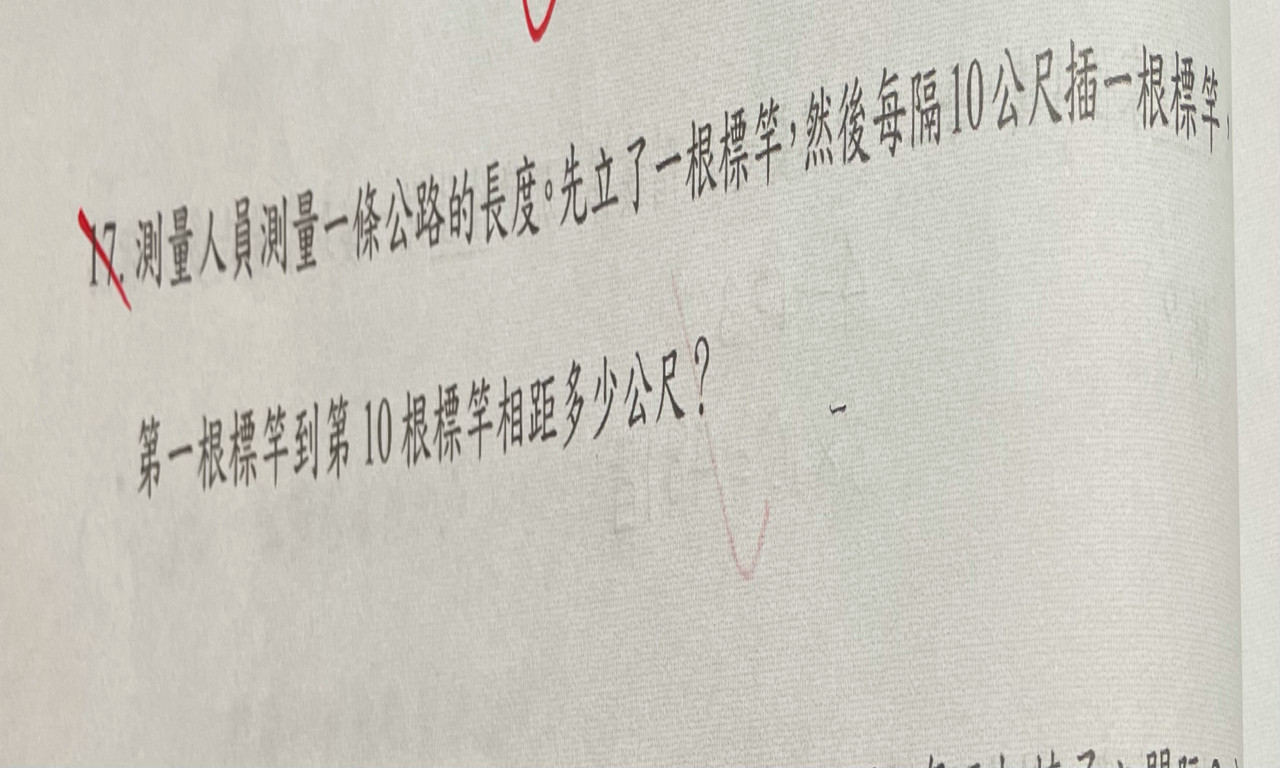 17. 測量人員測量一條公路的長度。先立了一根標竿，然後每隔10公尺插一根標竿，
第一根標竿到第10根標竿相距多少公尺？